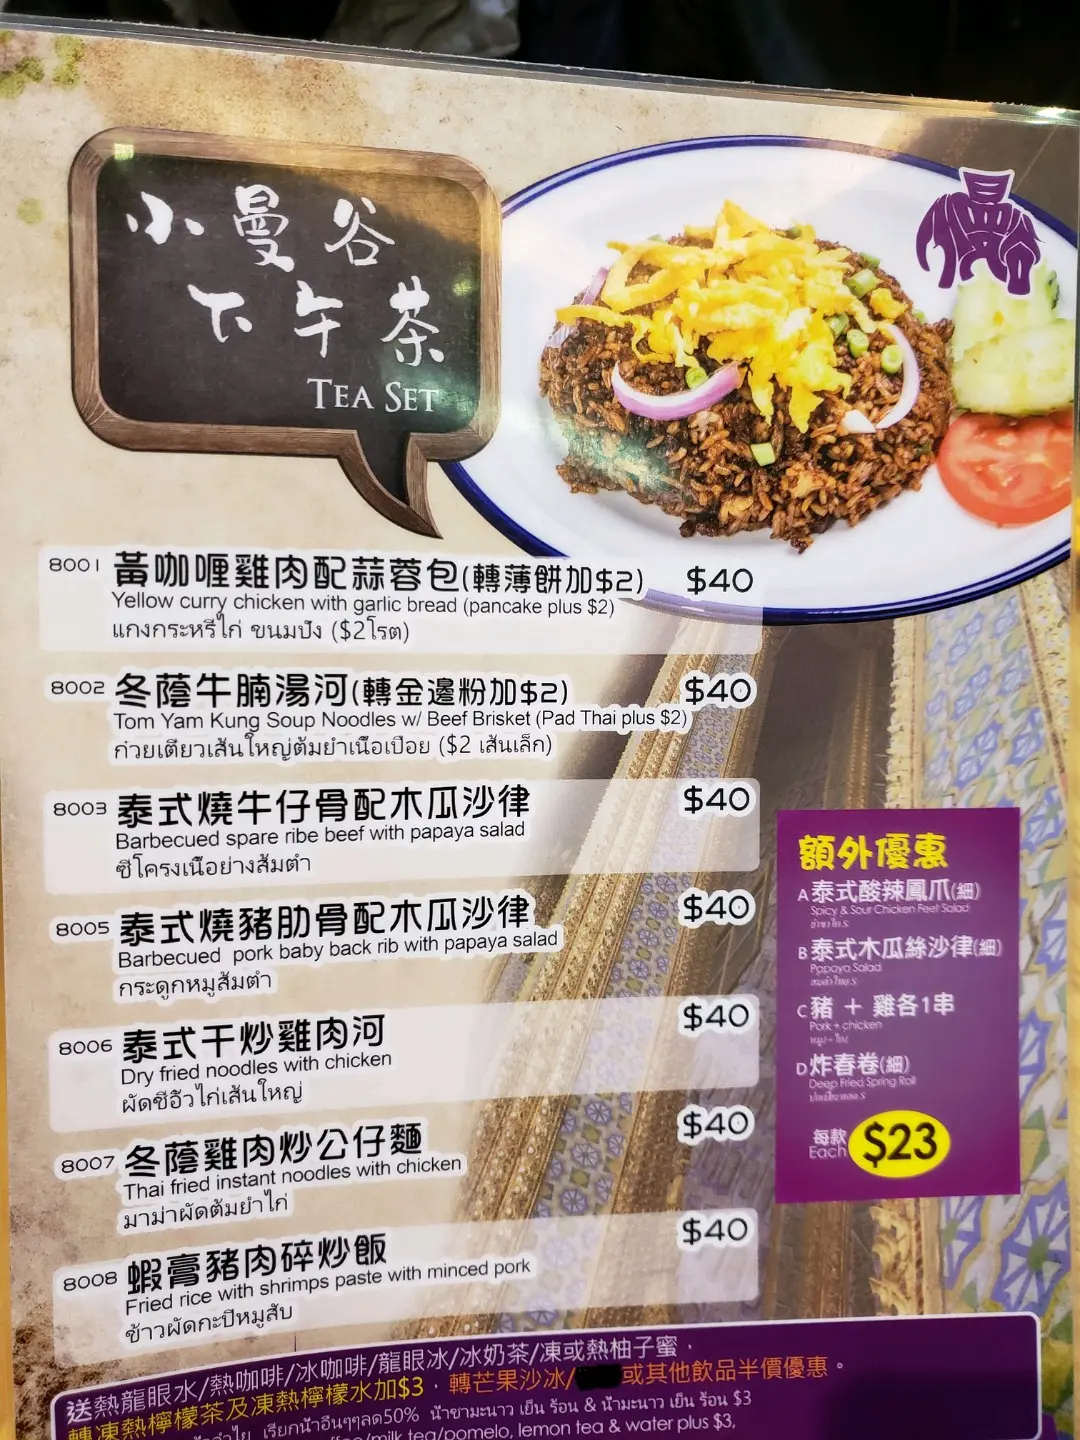 小曼谷
下午茶
TEA SET
小曼谷
8001 黃咖喱雞肉配蒜蓉包(轉薄餅加$2) $40
Yellow curry chicken with garlic bread (pancake plus $2)
แกงกระหรี่ไก่ ขนมปัง ($2โรตี)
8002 冬蔭牛腩湯河(轉金邊粉加$2) $40
Tom Yam Kung Soup Noodles w/ Beef Brisket (Pad Thai plus $2)
ก๋วยเตี๋ยวเส้นใหญ่ต้มยำเนื้อเปื่อย ($2 เส้นเล็ก)
8003 泰式燒牛仔骨配木瓜沙律 $40
Barbecued spare ribe beef with papaya salad
ซี่โครงเนื้อย่างส้มตำ
8005 泰式燒豬肋骨配木瓜沙律 $40
Barbecued pork baby back rib with papaya salad
กระดูกหมูส้มตำ
8006 泰式干炒雞肉河 $40
Dry fried noodles with chicken
ผัดซีอิ๊วไก่เส้นใหญ่
8007 冬蔭雞肉炒公仔麵 $40
Thai fried instant noodles with chicken
มาม่าผัดต้มยำไก่
8008 蝦膏豬肉碎炒飯 $40
Fried rice with shrimps paste with minced pork
ข้าวผัดกะปิหมูสับ
額外優惠
A 泰式酸辣鳳爪(細)
Spicy & Sour Chicken Feet Salad
B 泰式木瓜絲沙律(細)
Papaya Salad
C 豬 + 雞各1串
Pork + chicken
D 炸春卷(細)
Deep Fried Spring Roll
每款
Each $23
送熱龍眼水/熱咖啡/冰咖啡/龍眼冰/冰奶茶/凍或熱柚子蜜，
轉凍熱檸檬茶及凍熱檸檬水加$3，轉芒果沙冰/ 或其他飲品半價優惠。
เรียกน้ำอื่นๆลด50% น้ำชามะนาว เย็น ร้อน & น้ำมะนาว เย็น ร้อน $3
/milk tea/pomelo, lemon tea & water plus $3,